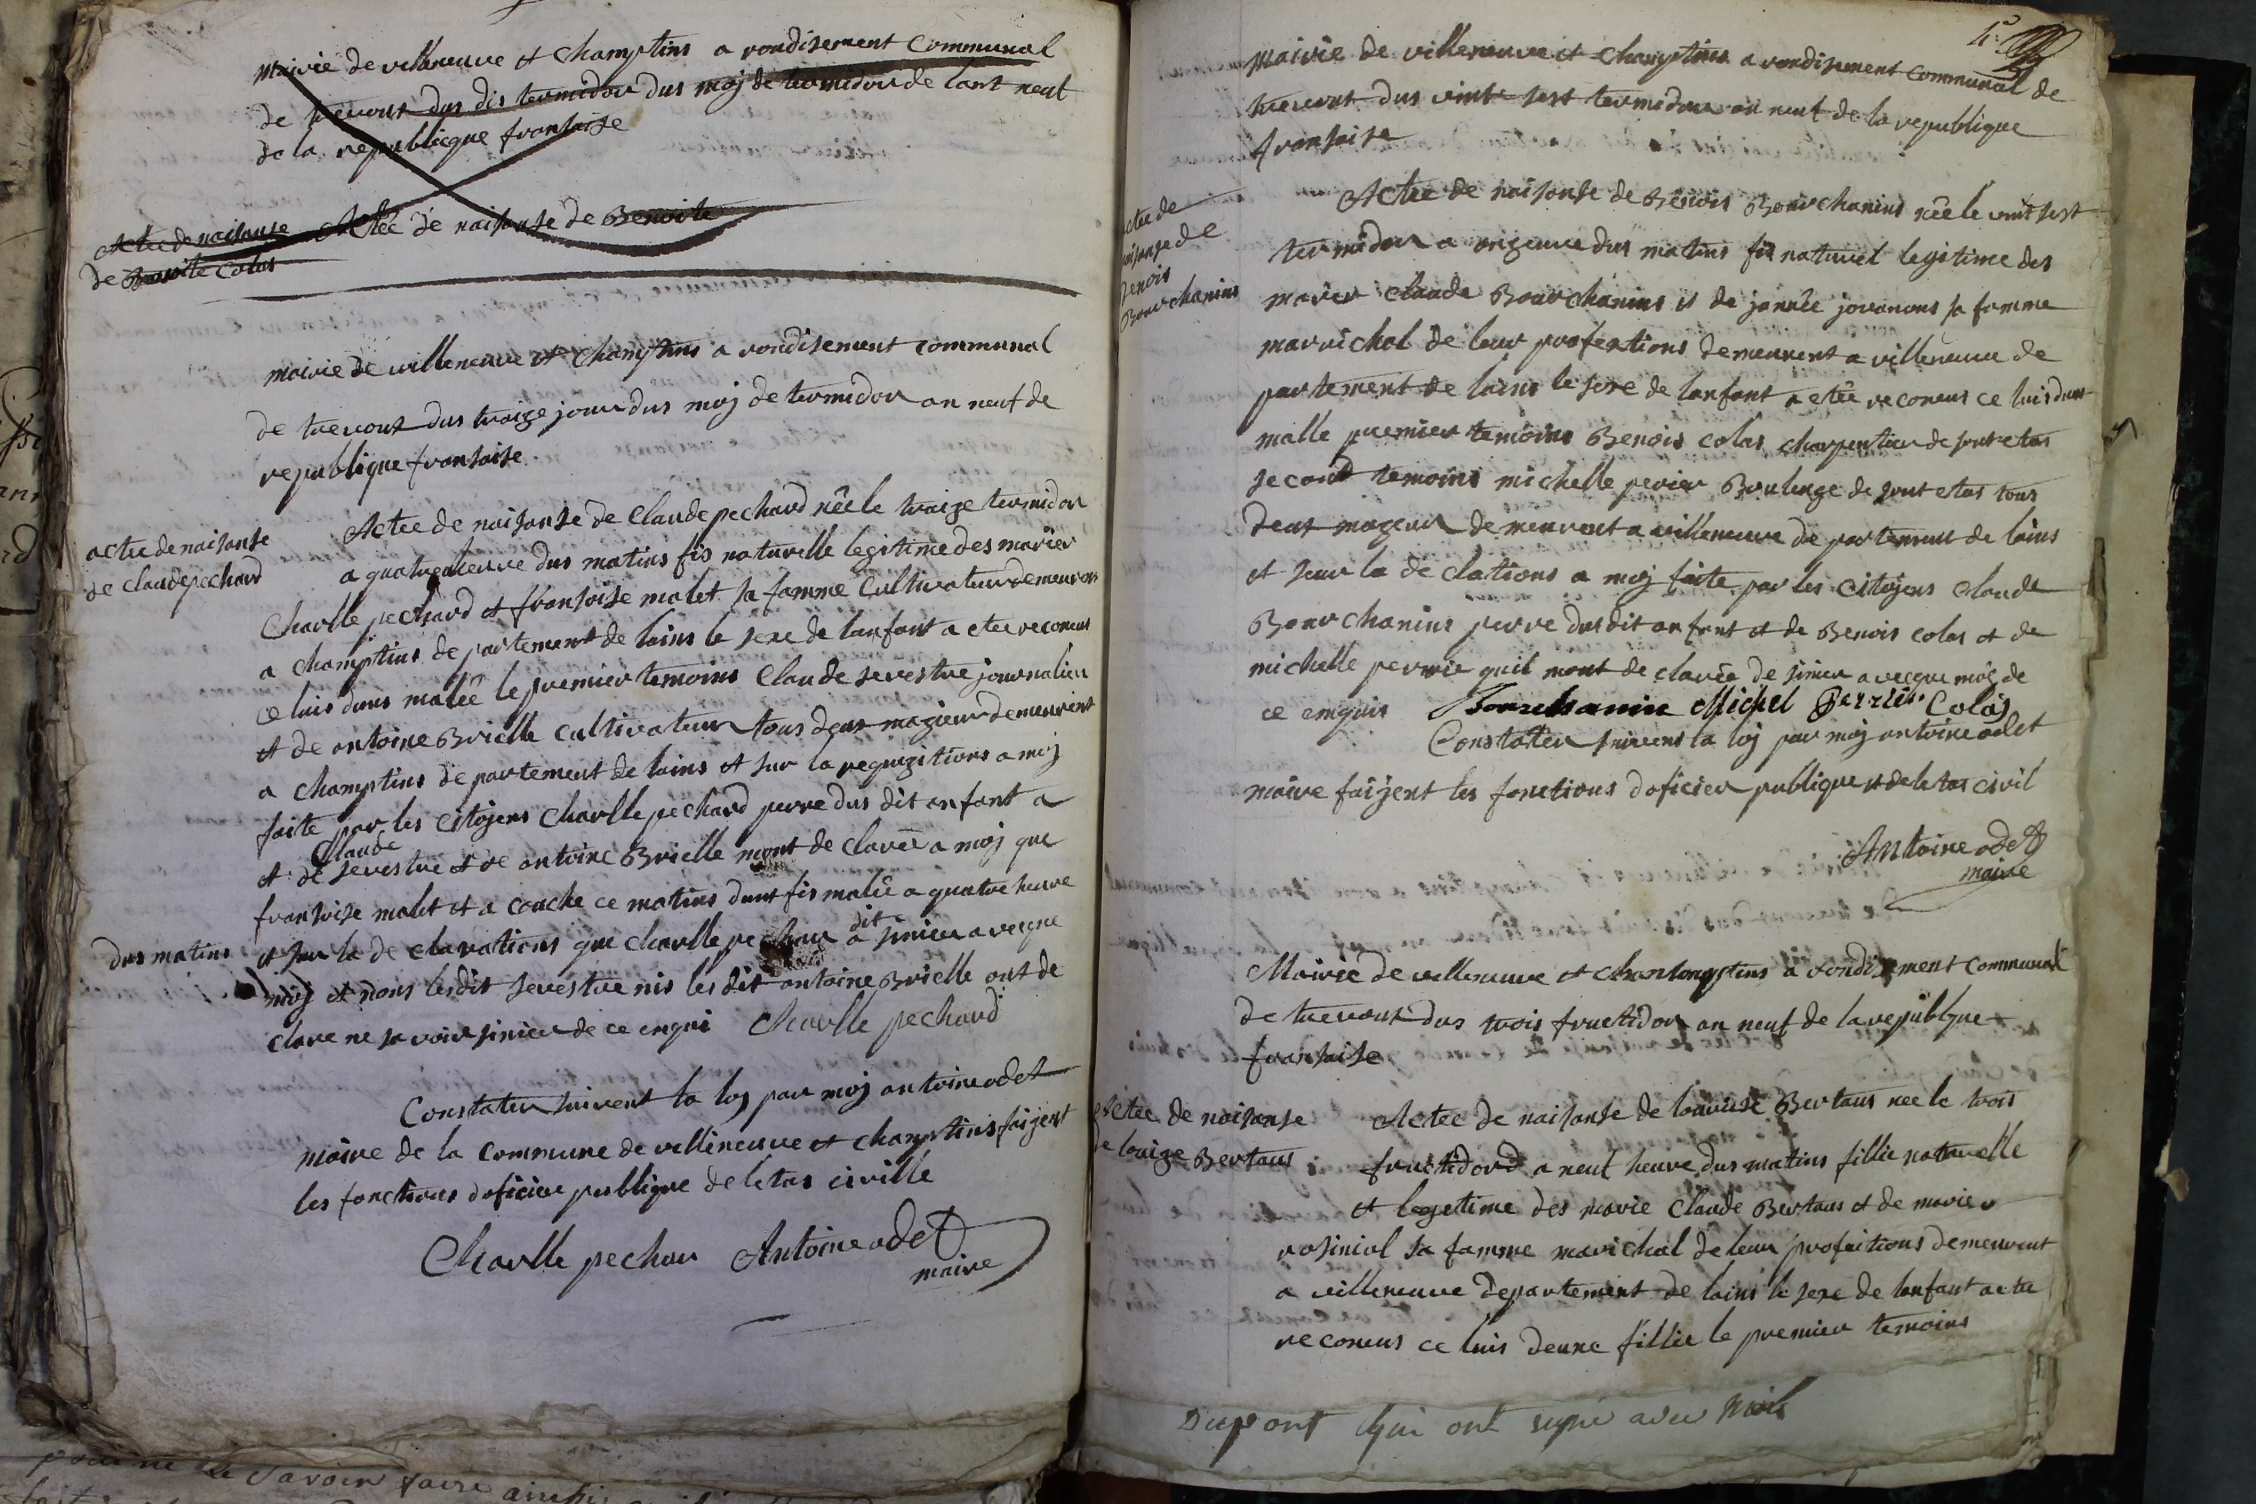 Mairie de villeneuve et Champtins a rondisement Communal
de trevout dus dis termidor dus moj de termidor de lant neut
de la republicque fransaise
Actee de naisanse
de Benoite Colas
Actée de naisanse de Benoite
mairie de villeneuve et Champtins a rondisement communal
de trevout dus traize jour dus moj de termidor an neut de
republique fransaise
actee de naisanse
de Claude pechard
Actee de naisanse de Claude pechard nêe le traize termidor
a quatre heure dus matins fis naturelle legitime des marier
Charlle pechard et fransoise malet sa famme Cultivateur demeuron
a Champtins de partement de lains le sexe de lanfant a etee reconeus
ce luis duns malêe le premier temoins Claude sevestre journalier
et de antoine Brielle Cultivateur tous deus magieur demeurent
a Champtins de partement de lains et sur la requizitions a moj
faite par les Citojens Charlle pechard perre dus dit anfant a
Claude
et de sevestre et de antoine Brielle mont de Clarêe a moj que
fransoise malet et a couche ce matins dunt fis malêe a quatre heure
dus matins
et sur la de clarations que Charlle pechar dit a sinier a vecque
moj et nons lesdit sevestre nis les dit antoine Brielle ont de
clare ne savoir sinier de ce enquis Charlle pechard
Constater suivent la loj par moj antoine odet
maire de la Commune de villeneuve et Champtins faizent
les fonctions doficier publique de letas civille
Charlle pechar Antoine odet
maire
4e
Mairie de villeneuve et Champtins a rondisement Communal de
trevout dus vint sest termidor an neut de la republique
fransaise
Actee de
naisanse de
Benois
Bourchanins
Actee de naisanse de Benois Bourchanins nêe le vint sest
termidor a onzeure dus matins fis naturel legitime des
marier Claude Bourchanins et de jannêe jovanons sa famme
marrichal de leur profestions demeurent a villeneuve de
partement de lains le sexe de lanfant a etêe reconeus ce luis dun
malle premier temoins Benois Colas Charpentier de sont etas
second temoins michelle perier Boulenge de sont etas tous
deus mageur demeurent a villeneuve de partement de lains
et seur la de clations a moj faite par les Citojens Claude
Bourchanins perre dus dit anfant et de Benois Colas et de
michelle perrie quil mont de clarêe de sinier avecque moj de
ce enquis Bourchanin Michel Perrier Colas
Constater suivens la loj par moj antoine odet
maire faizent les fonctions doficier publique et de letas civil
Antoine odet
maire
Mairie de villeneuve et Chantonptins a rondisement Communal
de trevout dus trois fructidor an neuf de la republque
fransaise
Actee de naisanse
de louize Bertaus
Actee de naisanse de louise Bertaus nee le trois
fructidord a neut heure dus matins fillie naturelle
et legetime des marie Claude Bertaus et de marier
rosiniol sa famme marichal de leur profaitions demeurent
a villeneuve departement de lains le sexe de lanfant a etee
reconeus ce luis deune fillie le premier temoins
Dupont qui ont signé avec moi
pour ne le savoir faire ainsi